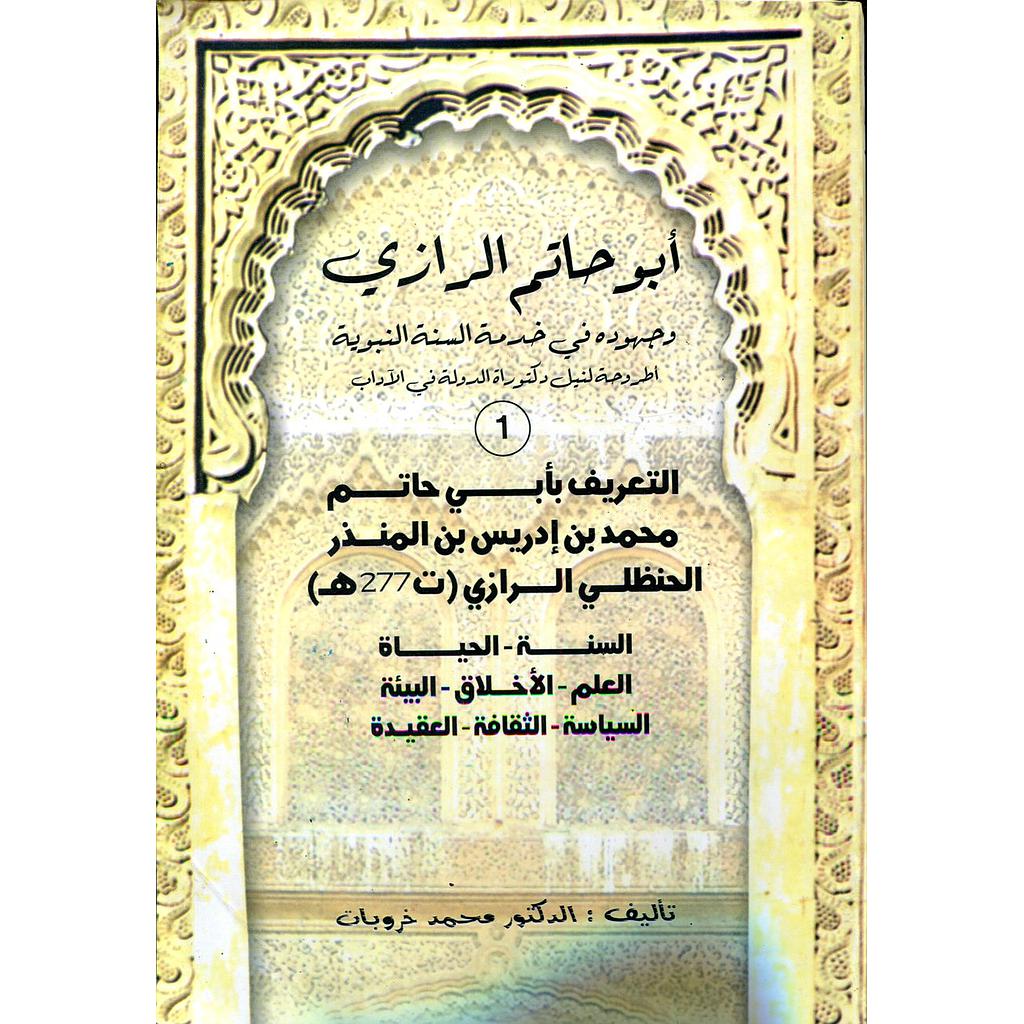 أبو حاتم الرازي
وجهوده في خدمة السنة النبوية
أطروحة لنيل دكتوراة الدولة في الآداب
1
التعريف بأبي حاتم
محمد بن إدريس بن المنذر
الحنظلي الرازي (ت 277 هـ)
السنة - الحياة
العلم - الأخلاق - البيئة
السياسة - الثقافة - العقيدة
تأليف : الدكتور محمد خروبات